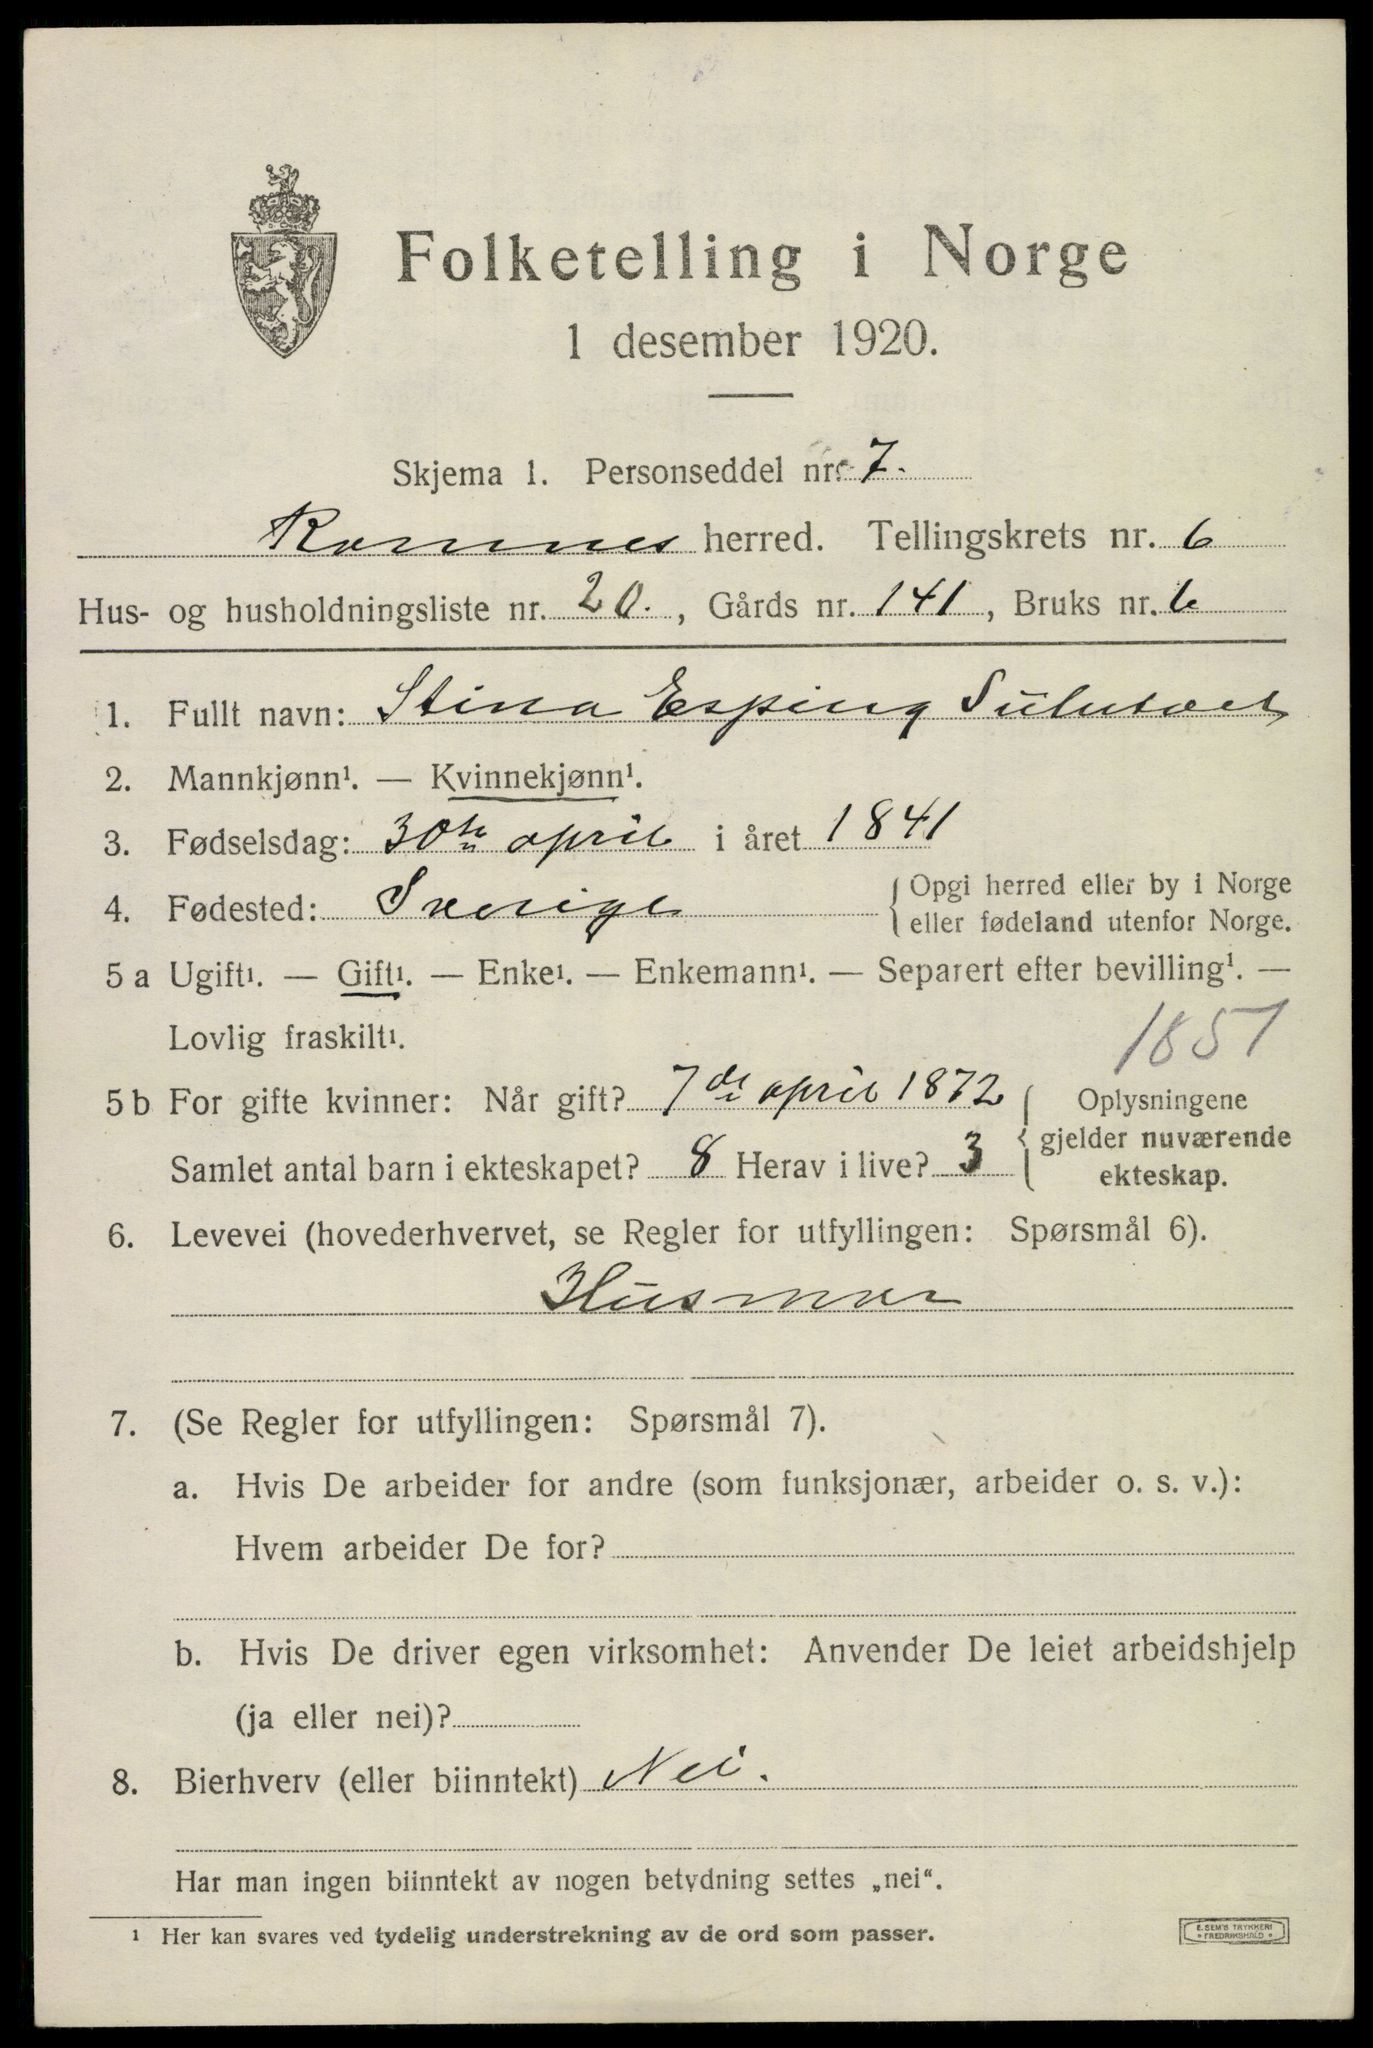 Folketelling i Norge
1 desember 1920.
Skjema 1. Personseddel nr. 7.
Ramnes herred. Tellingskrets nr. 6
Hus- og husholdningsliste nr. 20., Gårds nr. 141, Bruks nr. 6
1. Fullt navn: Stina Esping
2. Mannkjønn¹. — Kvinnekjønn¹.
3. Fødselsdag: 30te april i året 1841
4. Fødested: Sverige
{ Opgi herred eller by i Norge
eller fødeland utenfor Norge.
5 a Ugift¹. — Gift¹. — Enke¹. — Enkemann¹. — Separert efter bevilling¹. —
Lovlig fraskilt¹.
1851
5 b For gifte kvinner: Når gift? 7de april 1872
Samlet antal barn i ekteskapet? 8 Herav i live? 3
{ Oplysningene
gjelder nuværende
ekteskap.
6. Levevei (hovederhvervet, se Regler for utfyllingen: Spørsmål 6).
Husmor
7. (Se Regler for utfyllingen: Spørsmål 7).
a. Hvis De arbeider for andre (som funksjonær, arbeider o. s. v.):
Hvem arbeider De for?
b. Hvis De driver egen virksomhet: Anvender De leiet arbeidshjelp
(ja eller nei)?
8. Bierhverv (eller biinntekt) Nei.
Har man ingen biinntekt av nogen betydning settes „nei“.
¹ Her kan svares ved tydelig understrekning av de ord som passer.
E. SEM'S TRYKKERI
FREDRIKSHALD